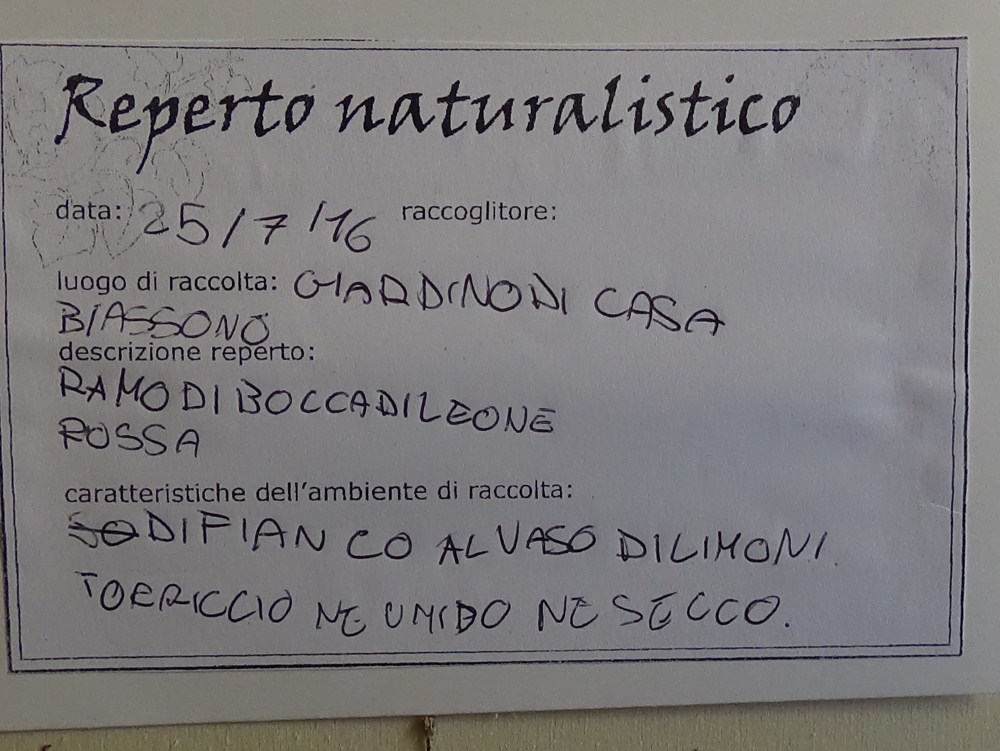 Reperto naturalistico
data: 25/7/16 raccoglitore:
luogo di raccolta: GIARDINO DI CASA
BIASSONO
descrizione reperto:
RAMO DI BOCCA DI LEONE
ROSSA
caratteristiche dell'ambiente di raccolta:
DI FIANCO AL VASO DI LIMONI.
TOERICCIO NE UMIDO NE SECCO.